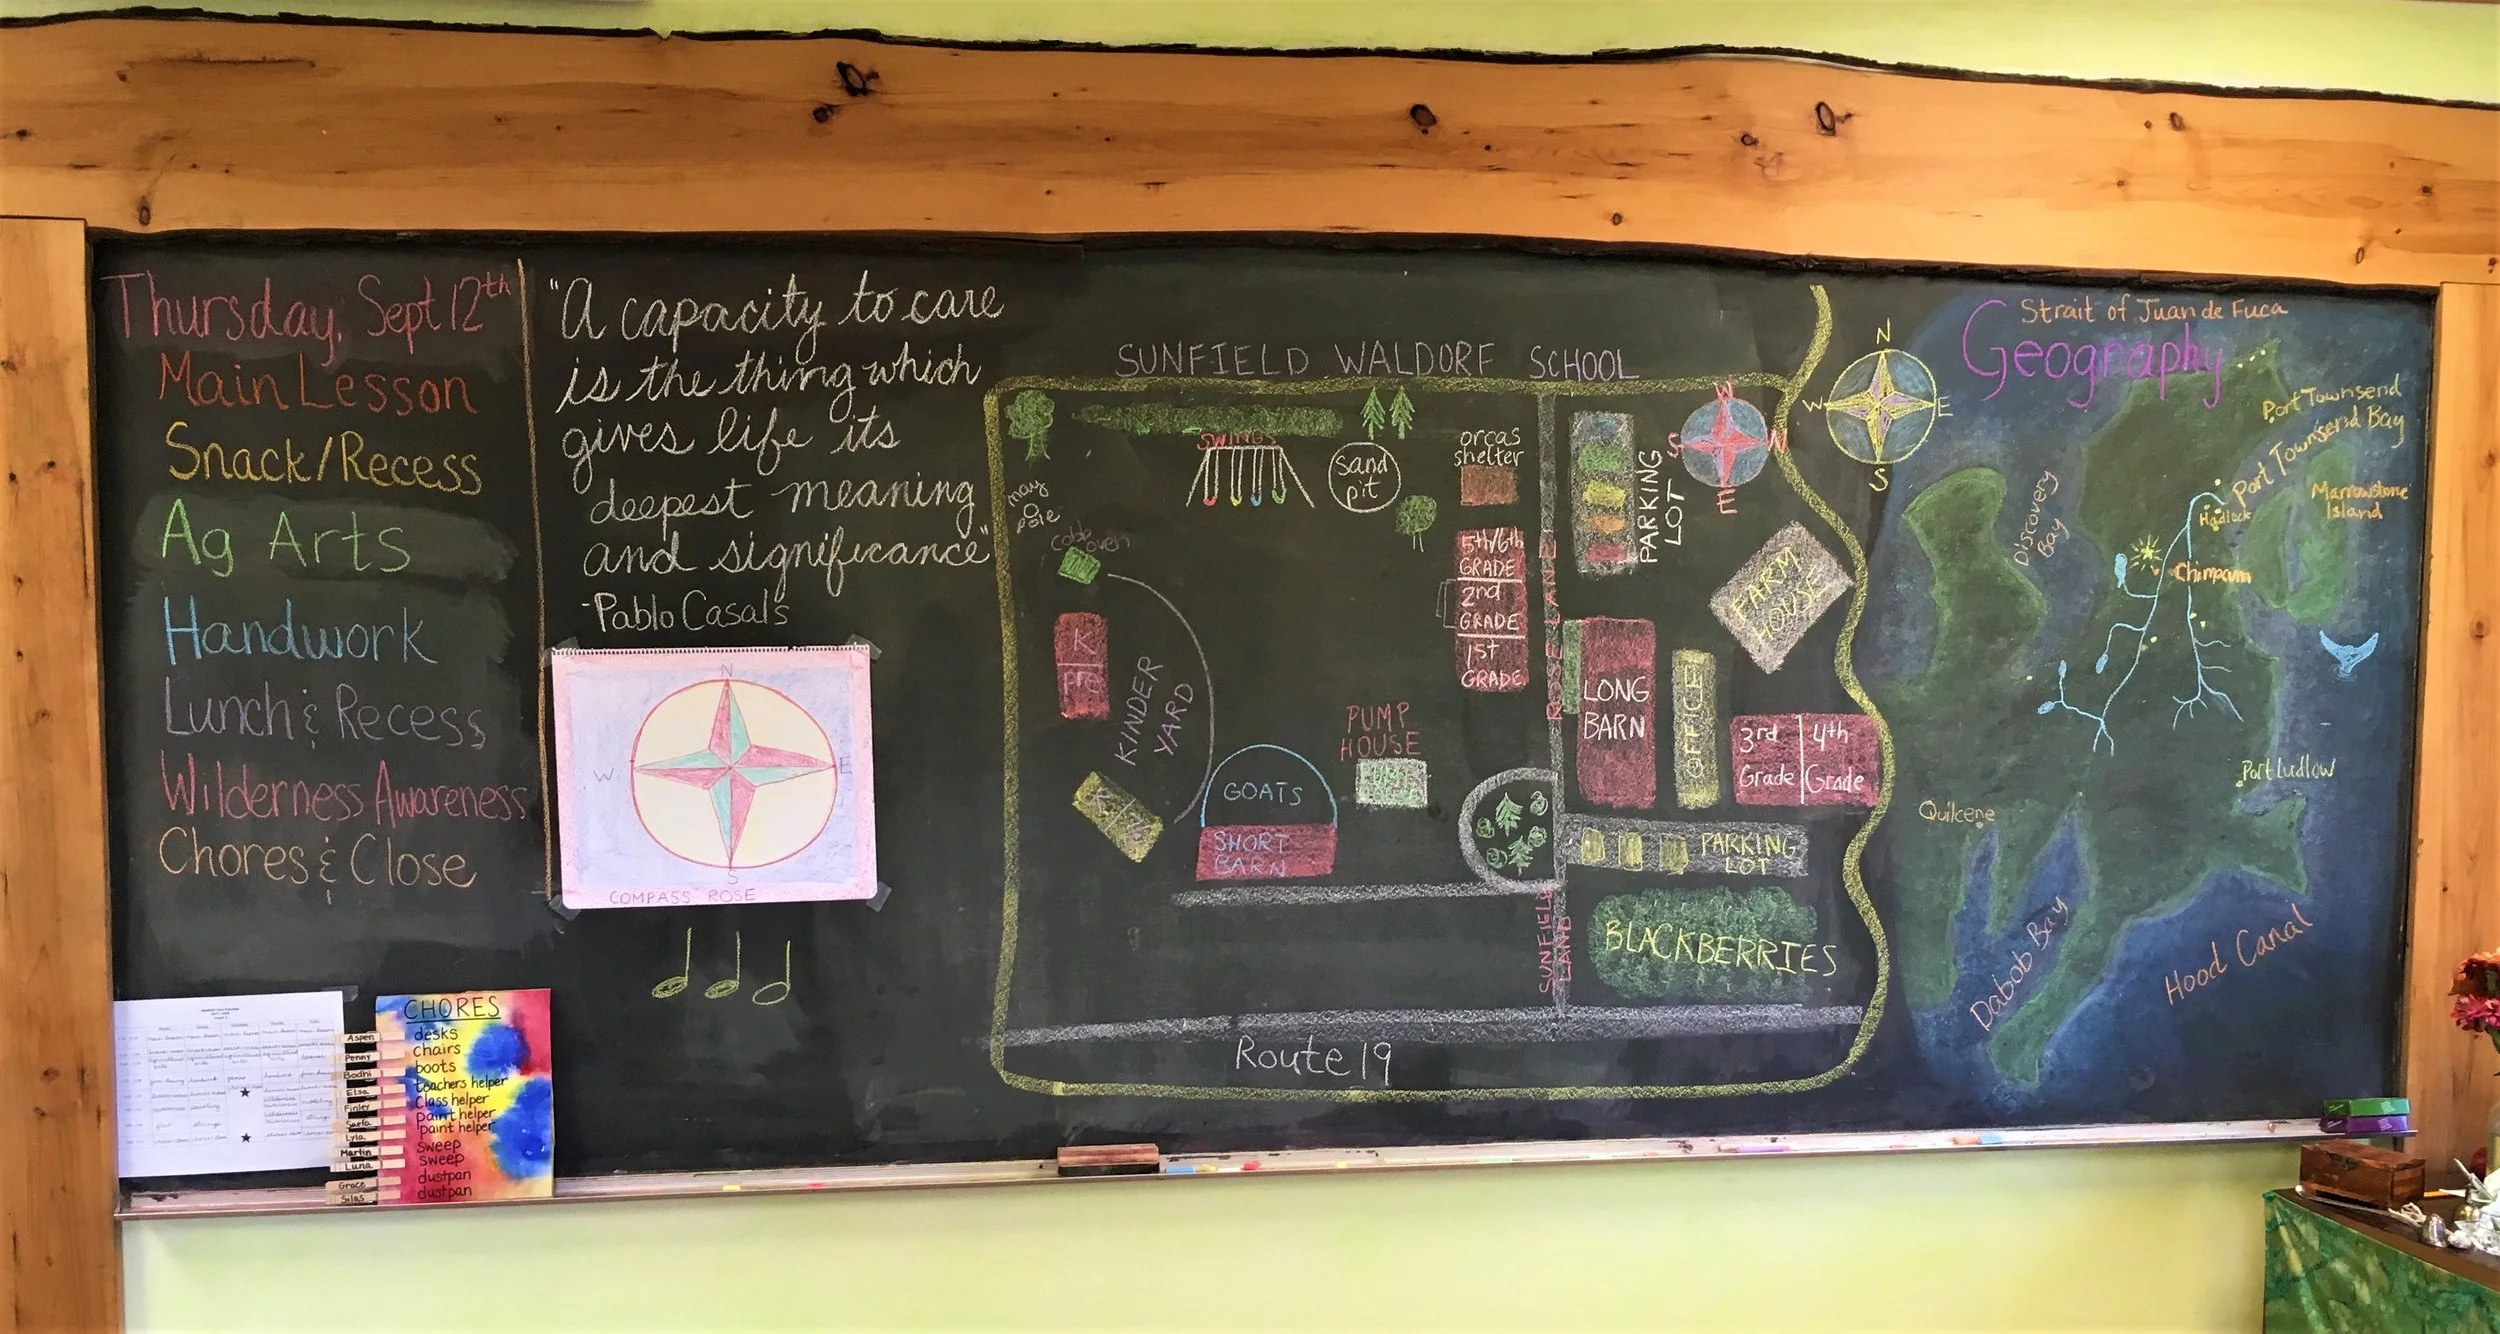 Thursday, Sept 12th
Main Lesson
Snack/Recess
Ag Arts
Handwork
Lunch & Recess
Wilderness Awareness
Chores & Close
"A capacity to care
is the thing which
gives life its
deepest meaning
and significance"
-Pablo Casals
N
W
E
S
COMPASS ROSE
CHORES
Aspen desks
Penny chairs
Bodhi boots
Elsa teachers helper
Finley Class helper
paint helper
Lyla paint helper
Martin sweep
Luna sweep
Grace dustpan
Silas dustpan
SUNFIELD WALDORF SCHOOL
SWINGS
sand
pit
orcas
shelter
may
pole
cobb oven
5th/6th
GRADE
2nd
GRADE
1st
GRADE
ROSE LANE
PARKING
LOT
W
S
N
E
FARM
HOUSE
K
pre
KINDER
YARD
GOATS
SHORT
BARN
PUMP
HOUSE
LONG
BARN
OFFICE
3rd
Grade
4th
Grade
PARKING
LOT
SUNFIELD
LANE
BLACKBERRIES
Route 19
N
W
E
S
Strait of Juan de Fuca
Geography
Port Townsend
Port Townsend Bay
Discovery
Bay
Marrowstone
Island
Hadlock
Chimacum
Port Ludlow
Quilcene
Dabob Bay
Hood Canal